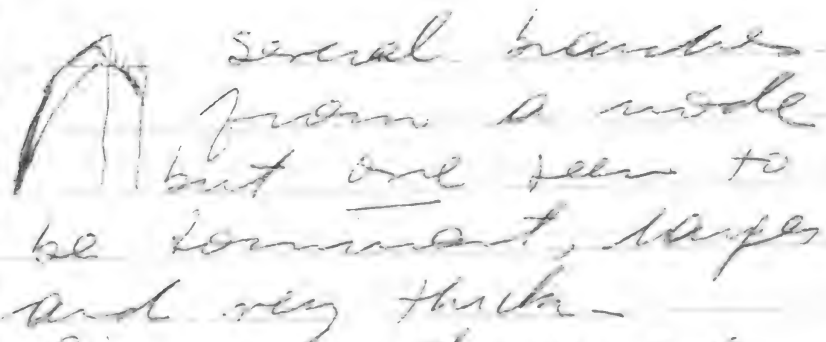 several branches
from a node
but one seem to
be dominant, larger
and very thick -